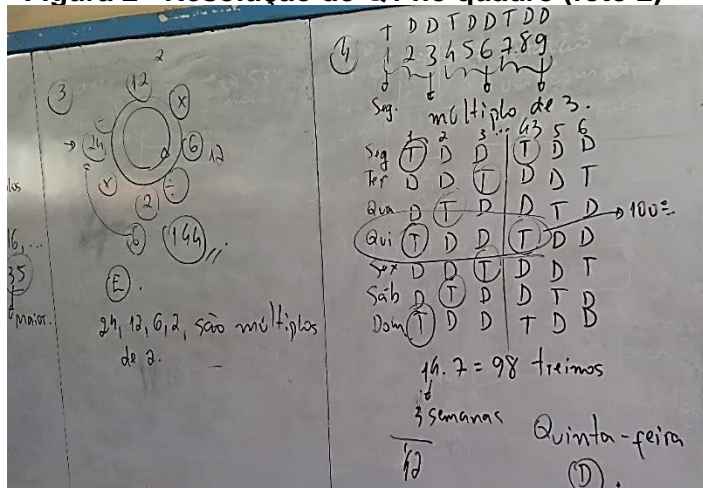 2
3
12
x
6 12
÷
2
x
24
6
144
E.
24, 12, 6, 2, são múltiplos
de 2.
16, ...
35
maior.
4
T D D T D D T D D
1 2 3 4 5 6 7 8 9
Seg. múltiplo de 3.
1 2 3 ... 43 5 6
Seg T D D T D D
Ter D D T D D T
Qua D T D D T D
Qui T D D T D D → 100º
Sex D D T D D T
Sáb D T D D T D
Dom T D D T D D
14.7 = 98 treinos
3 semanas
42
Quinta-feira
(D).